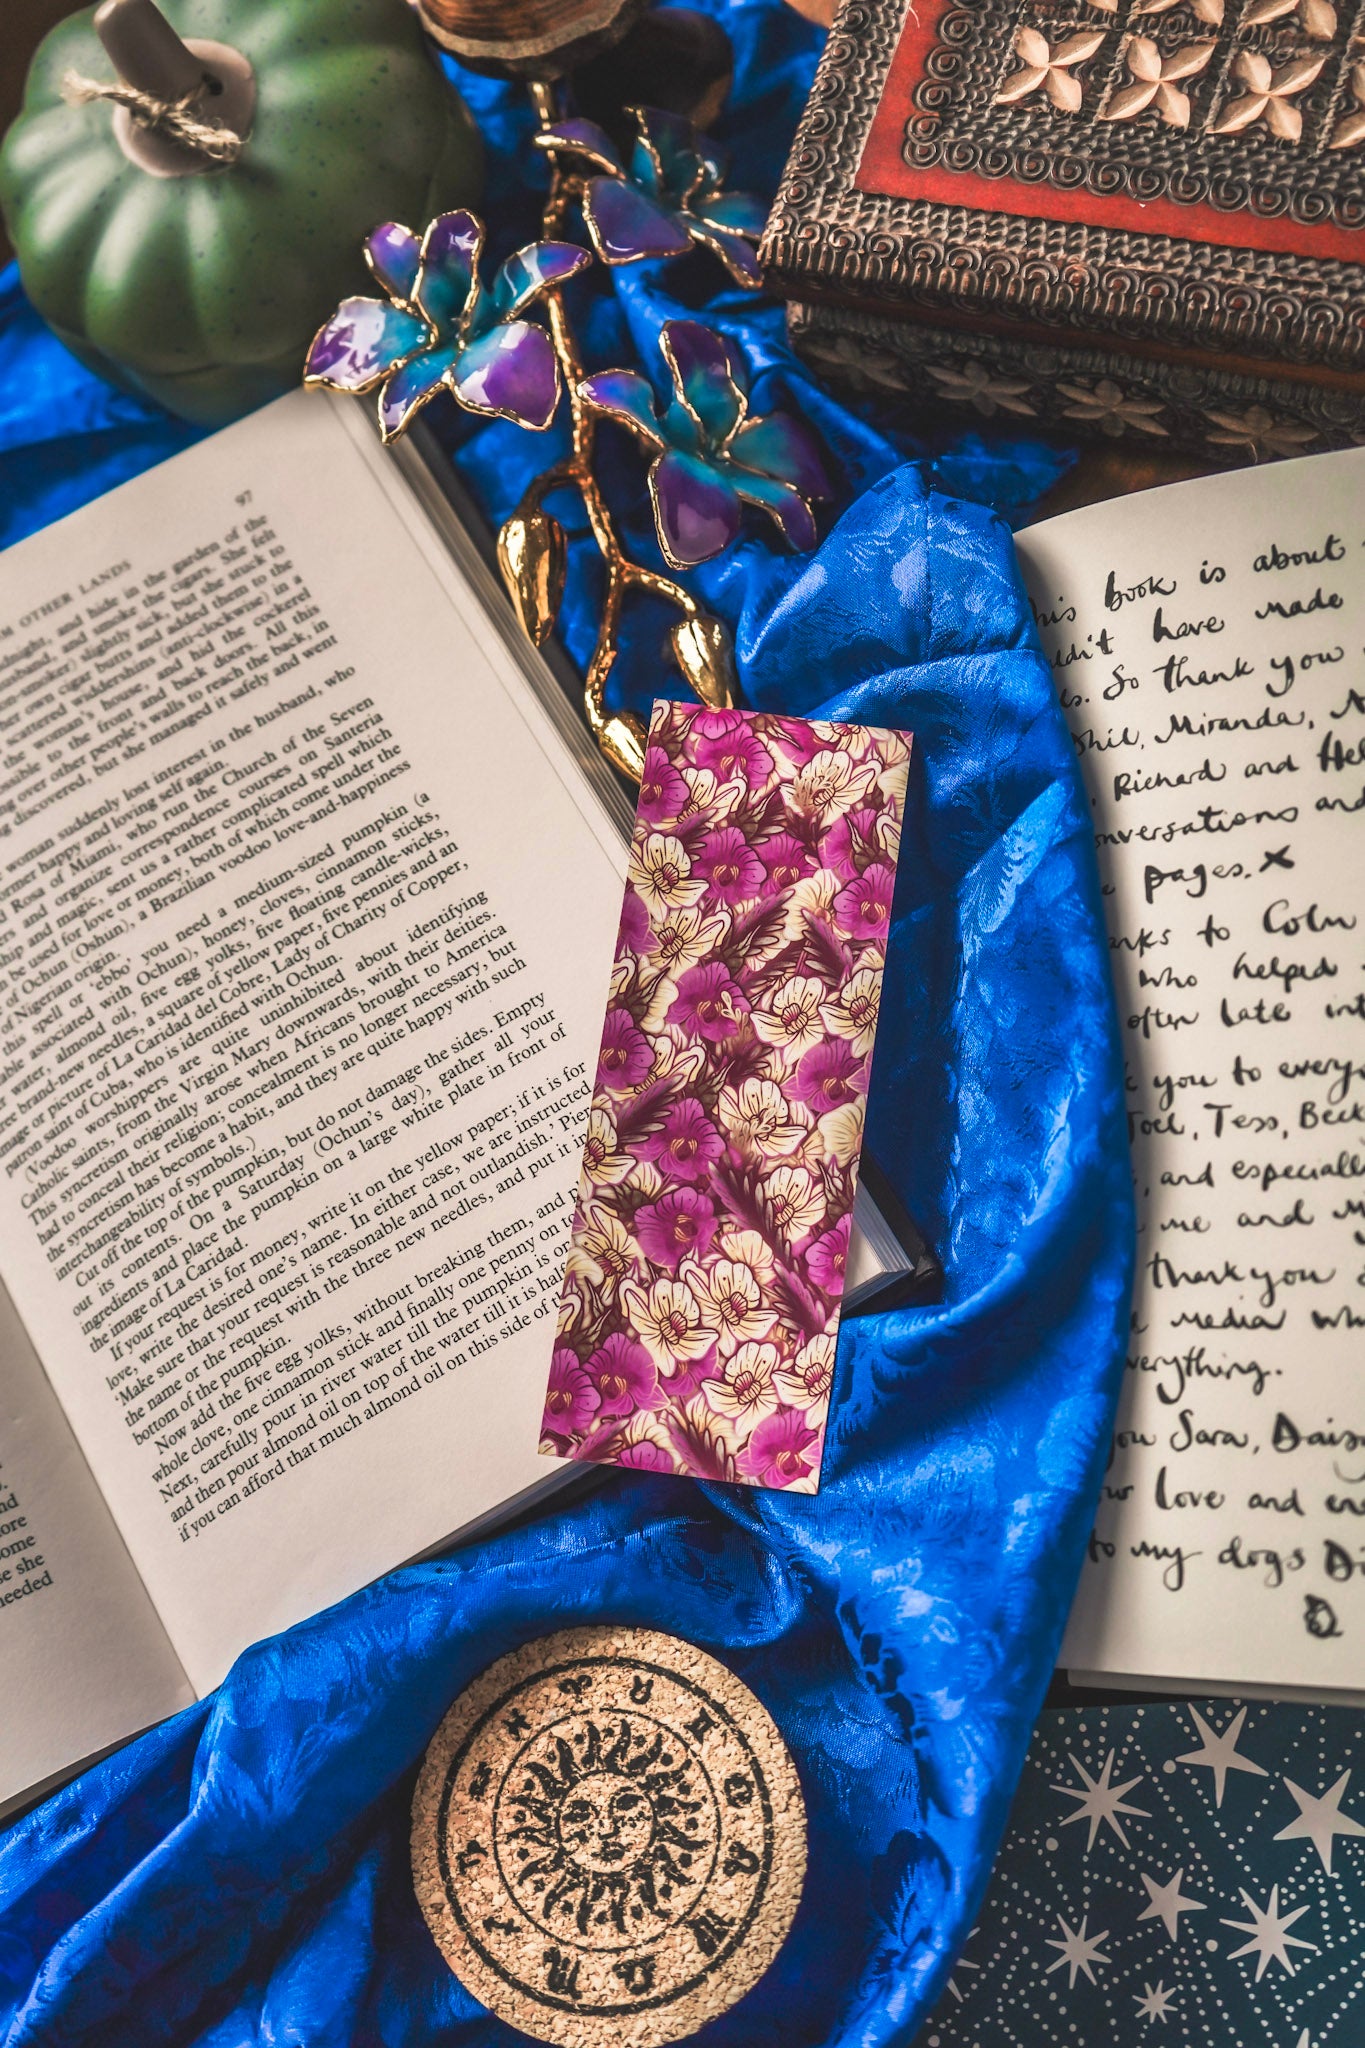 97
M OTHER LANDS
midnight, and hide in the garden of the
husband, and smoke the cigars. She felt
non-smoker) slightly sick, but she stuck to
her own cigar butts and added them to the
scattered widdershins (anti-clockwise) in a
the woman's house, and hid the cockerel
possible to the front and back doors. All this
over other people's walls to reach the back, in
discovered, but she managed it safely and went
woman suddenly lost interest in the husband, who
former happy and loving self again.
Rosa of Miami, who run the Church of the Seven
and organize correspondence courses on Santeria
and magic, sent us a rather complicated spell which
be used for love or money, both of which come under the
of Ochun (Oshun), a Brazilian voodoo love-and-happiness
of Nigerian origin.
this spell or 'ebbo' you need a medium-sized pumpkin (a
associated with Ochun), honey, cloves, cinnamon sticks,
water, almond oil, five egg yolks, five floating candle-wicks,
brand-new needles, a square of yellow paper, five pennies and an
image or picture of La Caridad del Cobre, Lady of Charity of Copper,
patron saint of Cuba, who is identified with Ochun.
(Voodoo worshippers are quite uninhibited about identifying
Catholic saints, from the Virgin Mary downwards, with their deities.
This syncretism originally arose when Africans brought to America
had to conceal their religion; concealment is no longer necessary, but
the syncretism has become a habit, and they are quite happy with such
interchangeability of symbols.)
Cut off the top of the pumpkin, but do not damage the sides. Empty
out its contents. On a Saturday (Ochun's day), gather all your
ingredients and place the pumpkin on a large white plate in front of
the image of La Caridad.
If your request is for money, write it on the yellow paper; if it is for
love, write the desired one's name. In either case, we are instructed
'Make sure that your request is reasonable and not outlandish.' Pier
the name or the request with the three new needles, and put it in
bottom of the pumpkin.
Now add the five egg yolks, without breaking them, and p
whole clove, one cinnamon stick and finally one penny on to
Next, carefully pour in river water till the pumpkin is or
and then pour almond oil on top of the water till it is hal
if you can afford that much almond oil on this side of th
nd
ore
ome
se she
needed
his book is about
uldn't have made
es. So thank you
Phil, Miranda, N
, Richard and He
onversations and
pages. x
anks to Colm
who helped
often late int
k you to every
Joel, Tess, Beck
, and especially
me and My
thank you
media wh
verything.
you Sara, Daisy
our love and en
to my dogs D